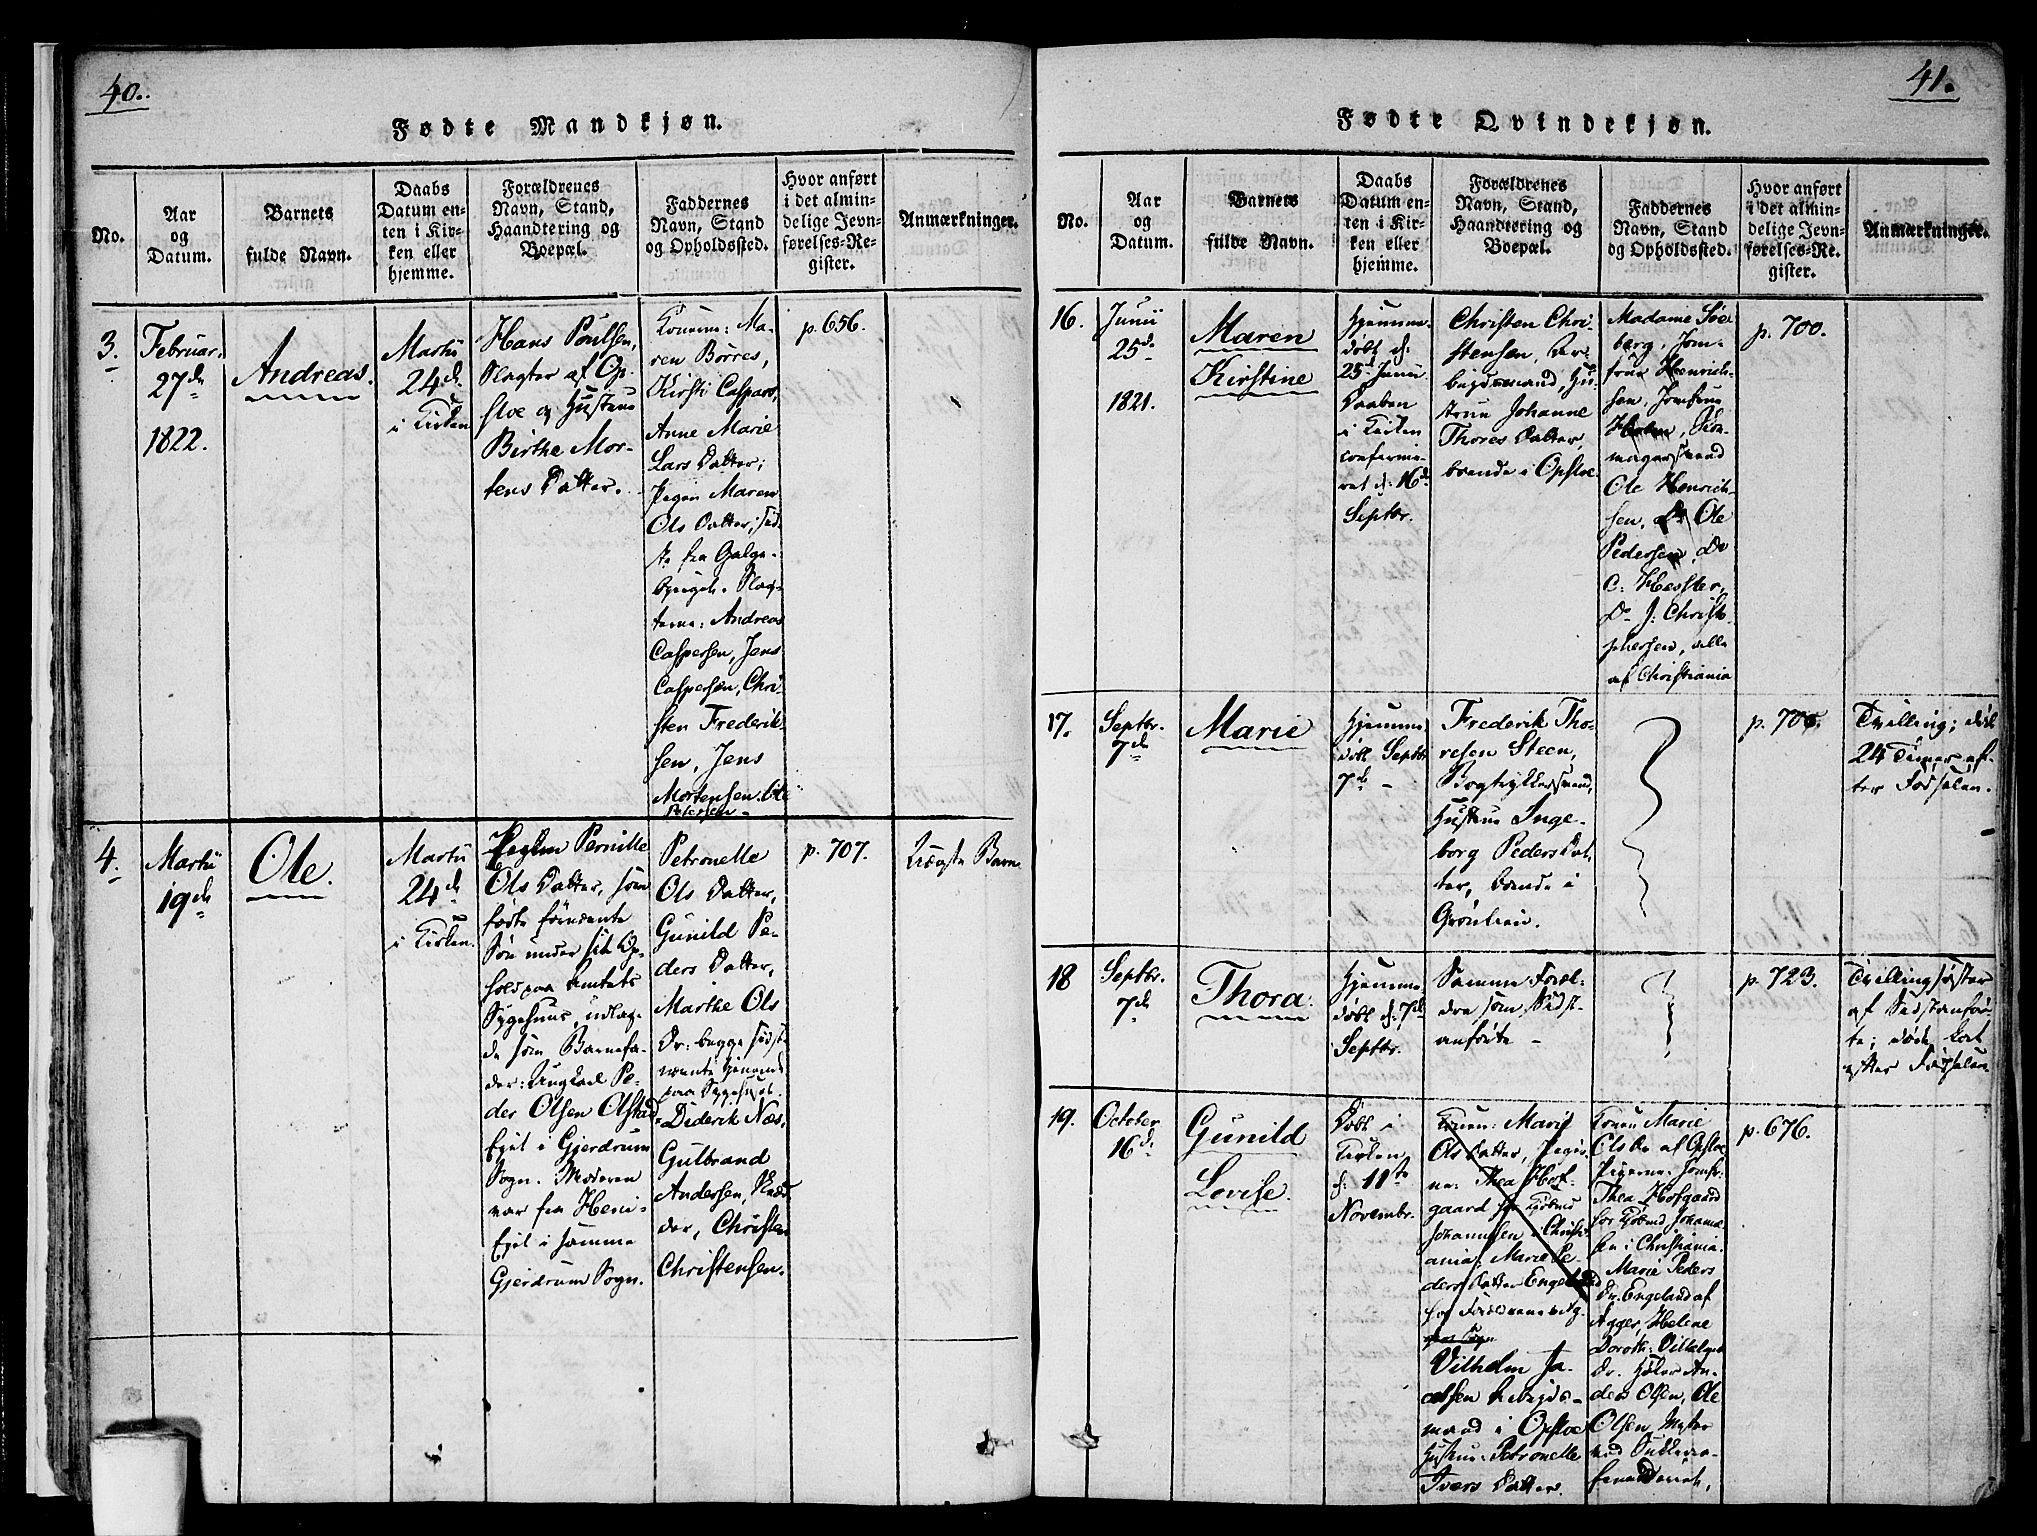 40.
Fødte Mandkjøn.
No.
Aar
og
Datum.
Barnets
fulde Navn.
Daabs
Datum en-
ten i Kir-
ken eller
hjemme.
Forældrenes
Navn, Stand,
Haandtering og
Boepæl.
Faddernes
Navn, Stand
og Opholdssted.
Hvor anført
i det almin-
delige Jevn-
førelses-Re-
gister.
Anmærkninger.
3.
Februar.
27de
1822.
Andreas.
Martii
24de
i Kirken
Hans Poulsen,
Slagter af Op-
sloe og Hustrue
Birthe Mor-
tens Datter.
Konerne: Ma-
ren Børres,
Kirsti Caspars,
Anne Marie
Lars Datter;
Pigen Maren
Ols Datter; sid-
ste fra Galge-
berget. Slag-
terne: Andreas
Caspersen, Jens
Caspersen, Chri-
sten Frederik-
sen, Jens
Mortensen. Ole
Petersen
p. 656.
4.
Martii
19de
Ole.
Martii
24de
i Kirken.
Pigen Pernille
Ols Datter, som
fødte
Søn under sit Op-
hold paa Amtets
Sygehuus, udlag-
de som Barnefa-
der: Ungkarl Pe-
der Olsen Olstad
Eje i Gjerdrum
Sogn. Moderen
var fra Heni-
Eje i samme
Gjerdrum Sogn.
Petronelle
Ols Datter,
Gunild Pe-
ders Datter,
Marthe Ols
Dr: begge sidst
paa Sygehuset.
Diderik Næs,
Gulbrand
Andersen,
Christen
Christensen.
p. 707.
Uægte Barn
41.
Fødte Qvindekjøn.
No.
Aar
og
Datum.
Barnets
fulde Navn.
Daabs
Datum en-
ten i Kir-
ken eller
hjemme.
Forældrenes
Navn, Stand,
Haandtering og
Boepæl.
Faddernes
Navn, Stand
og Opholdssted.
Hvor anført
i det almin-
delige Jevn-
førelses-Re-
gister.
Anmærkninger.
16.
Junii
25de
1821.
Maren
Kirstine
Hjemme-
døbt d:
25de Junii
Daaben
i Kirken
confirme-
ret d: 16de
Septbr.
Christen Chri-
stensen, Ar-
bejdsmand, Hu-
strue Johanne
Thores Datter,
boende i Opsloe
Madame
berg, Jom-
frue Henrich-
sen, Jomfrue
Holm, Skoe-
magersvend
Ole Henrich-
sen, Do Ole
Pedersen, Do
C. Heesster,
Do J: Christo-
phersen, alle
af Christiania
p. 700.
17.
Septbr.
7de
Marie
Hjemme
døbt Septbr
7de
Frederik Tho-
resen Steen,
Bogtrykkersvend,
Hustrue Inge-
borg Peders Dat-
ter, boende i
Grønlien.
?
p. 705.
Tvilling; død
24 Timer ef-
ter Fødselen.
18
Septbr.
7de
Thora.
Hjemme
døbt d: 7de
Septbr.
Samme Foræl-
dre som Sidst-
anførte
?
p. 723.
Tvillingsøster
af Sidstanfør-
te; døde kort
efter Fødselen
19.
October
16de
Gunild
Lovise.
Døbt i
Kirken
d: 11te
Novembr.
Konen: Marie
Ols Datter, Piger-
ne: Thea Hof-
gaard for Kjøbmd
Johannsen i Christi-
ania: Marie Pe-
ders Datter Engeland
Vilhelm Ja-
cobsen Arbejds-
mand i Opsloe
Hustrue: Petronelle
Ivers Datter.
Konen Marie
Ols Dr af Opsloe
Pigerne: Jomfr.
Thea Hofgaard
for Kjøbmd Johann-
sen i Christiania.
Marie Peders
Dr. Engeland af
Agger, Helene
Doroth:
Dr.
An-
ders Olsen, Ole
Olsen,
ved
p. 676.